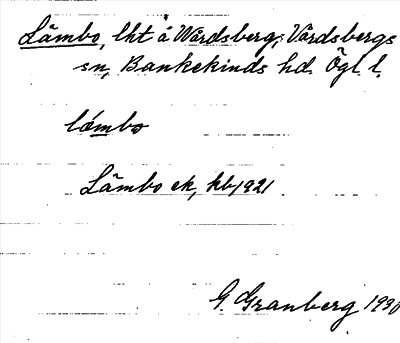 Låmbo, lht å Wårdsberg, Vårdsbergs
sn, Bankekinds hd. Ögl. l.
låmbo
Låmbo ek, kb 1921
G. Granberg 1930